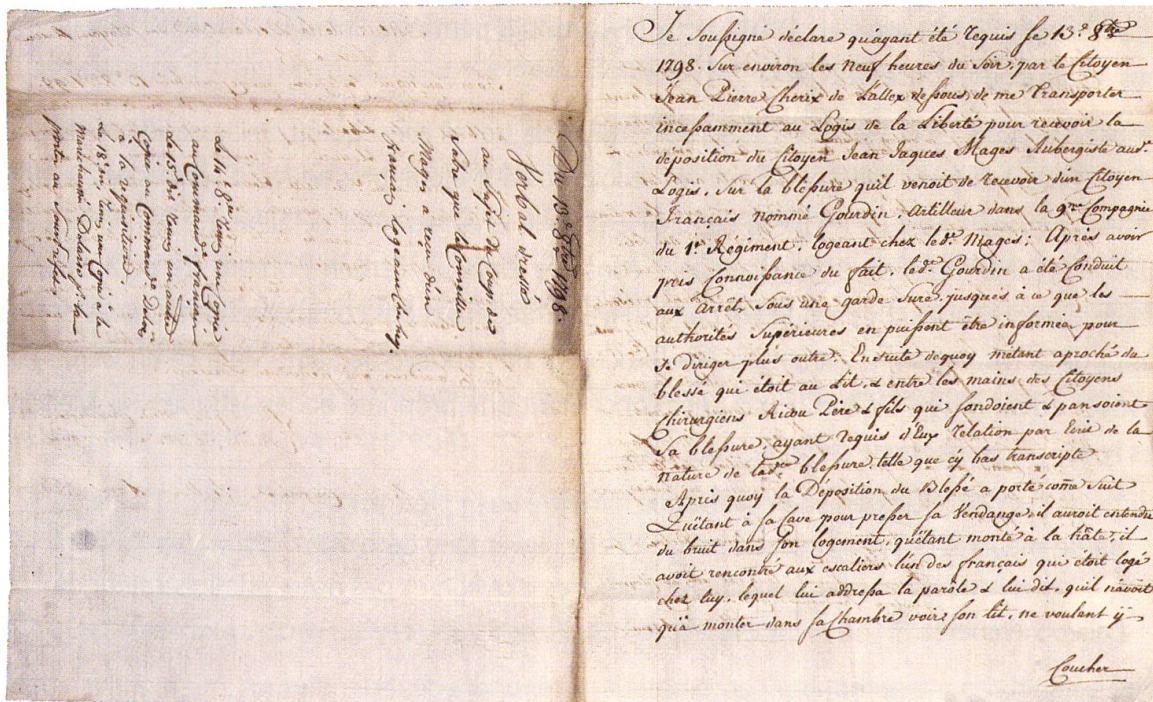 Du 13.e 8bre 1798.
Verbal dressé
au Sujet du Coup de
Sabre que le
Mages a reçu d'un
français logeant chez luy.
Le 14.e 8bre une Copie
au Command.t français
Copie au
à sa requisition.
Le 18.e une Copie à la
Je Soussigné déclare qu'ayant été requis le 13.e 8bre
1798. Sur environ les Neuf heures du Soir, par le Citoyen
Jean Pierre Cherix de Lallex dessous, de me transporter
incessamment au Logis de la Liberté pour recevoir la
déposition du Citoyen Jean Jaques Mages Aubergiste aud.t
Logis, Sur la blessure quil venoit de recevoir d'un Citoyen
Français nommé Gourdin, Artilleur dans la 9.me Compagnie
du 1.r Régiment, logeant chez led.t Mages; Après avoir
pris Connoissance du fait, led.t Gourdin a été Conduit
aux Arrêt, Sous une garde Sure, jusques à ce que les
authorités Supérieures en puissent être informéa pour
se diriger plus outre; Ensuite dequoy métant aproché du
blessé qui étoit au Lit, & entre les mains des Citoyens
Chirurgiens Ricou Père & fils qui Sondoient & pansoient
Sa blessure, ayant requis d'Eux relation par Ecrit de la
nature de lad.te blessure, telle que cy bas transcripte
Après quoy la Déposition du Blessé a porté come Suit
Quétant à sa Cave pour presser sa Vendange, il auroit entendu
du bruit dans son logement, quétant monté à la hâte, il
avoit rencontré aux escaliers l'un des français qui étoit logé
chez luy, lequel lui addressa la parôle & lui dit, quil n'avoit
qu'à monter dans sa Chambre voir son lit, ne voulant ÿ
Coucher